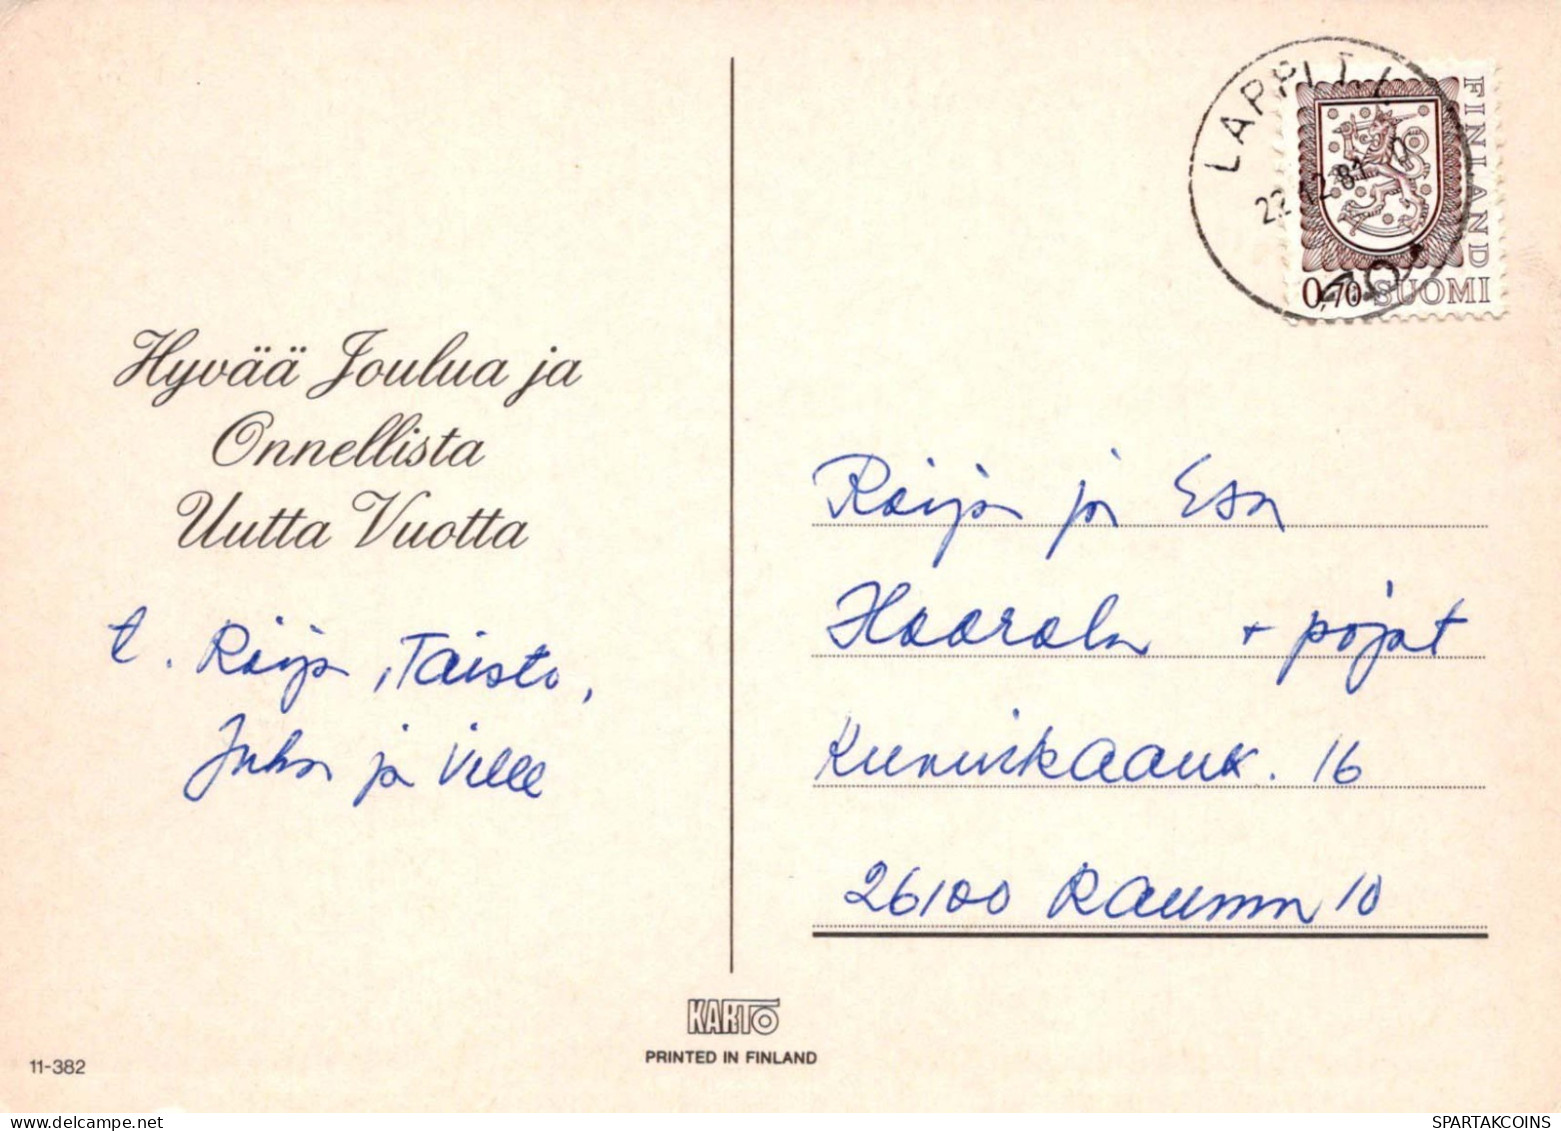 LAPPI T.L.
22.12.81
FINLAND
0,70 SUOMI
Hyvää Joulua ja
Onnellista
Uutta Vuotta
t. Raija, Taisto,
Juha ja Ville
Raija ja Esa
Haarala + pojat
16
26100 Rauma 10
KARTO
PRINTED IN FINLAND
11-382
www.delcampe.net
SPARTAKCOINS